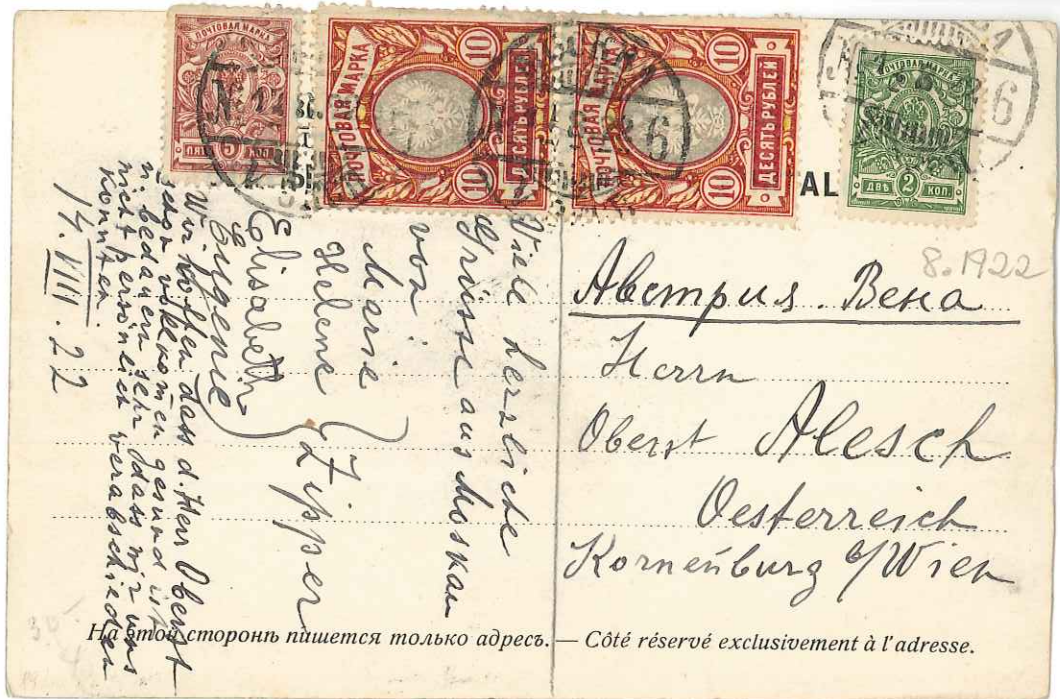 ПОЧТОВАЯ МАРКА
5
ПЯТЬ КОП.
10
ПОЧТОВАЯ МАРКА
ДЕСЯТЬ РУБЛЕЙ
10
10
ПОЧТОВАЯ МАРКА
ДЕСЯТЬ РУБЛЕЙ
10
ПОЧТОВАЯ МАРКА
ДВѢ 2 КОП.
6
6
AL
8.1922
Австрия. Вена
Herrn
Oberst Alesch
Oesterreich
Korneuburg b/Wien
Viele herzliche
Grüsse aus Moskau
von
Marie
Helene
Elisabeth
Eugenie
Zipper
Wir hoffen dass d. Herr Oberst
schon vollkomen gesund ist
u. bedauern sehr dass wir uns
nicht persönlich verabschieden
konnten.
14.VIII.22
На этой сторонѣ пишется только адресъ. — Côté réservé exclusivement à l'adresse.